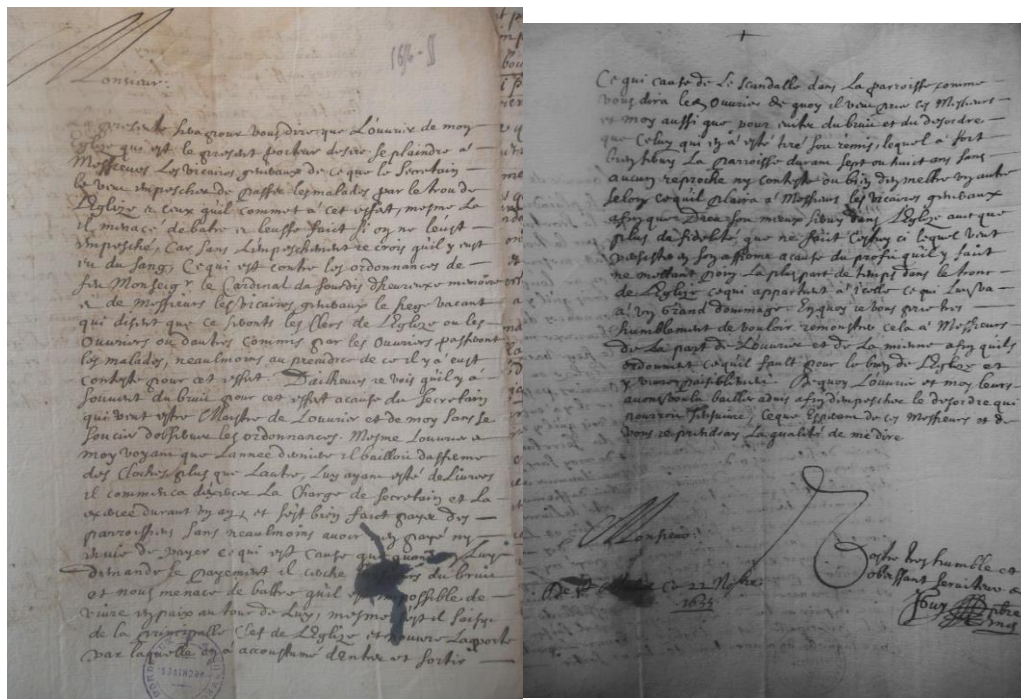 Monsieur
La presente sera pour vous dire que L'ouvrier de mon
Eglize qui est le present porteur desire se plaindre à
Messieurs Les vicaires generaux de ce que le Secretain
le veut empescher de passer les malades par le trou de
L'Eglize et ceux qu'il commet à cet effet, mesme La
il menace de batre et l'eusse faict si on ne l'eust
empesché, Car sans L'empeschement je crois qu'il y eust
eu du sang, Ce qui est contre les ordonnances de
feu Monseigr le Cardinal de Sourdis d'heureuze memoire
et de Messieurs les vicaires generaux le siege vacant
qui disent que ce seront les Clers de L'Eglize ou les
Ouvriers ou dautres Commis par les Ouvriers
les malades, neaulmoins au prejudice de ce il y à eust
conteste pour cet effet. D'ailheurs je vois qu'il y à
souvent du bruit pour cet effet a cause du Secretain
qui veut estre Maistre de L'ouvrier et de moy sans se
soucier d'observer les ordonnances. Mesme L'ouvrier et
moy voyant que L'annee derniere il bailloit
des Cloches plus que Lautre, Luy ayant esté delivrés
il commença La Charge de Secretain et La
exercée durant un an, et s'est bien faict payer des
parroissiens sans neaulmoins avoir rien payé ny
envie de payer ce qui est cause que quand Luy
demande le payement il du bruit
et nous menace de battre qu'il est impossible de
vivre en paix autour de Luy, mesmes il est saisy
de la principalle Clef de L'Eglize et n'ouvre La porte
par laquelle on à accoustumé d'entrer et sortir
Ce qui cause de Le scandalle dans La parroisse comme
vous dira les Ouvriers de quoy il veut prier ces Messieurs
et moy aussi que pour eviter du bruit et du desordre
que Celuy qui en à esté tiré soit remis, lequel à fort
bien servy La parroisse durant sept ou huict ans sans
aucun reproche ny conteste ou bien d'en mettre un autre
selon ce qu'il plaira à Messieurs les vicaires generaux
afin que Dieu soit mieux servy dans L'Eglize avecque
plus de fidelité que ne faict Cestuy ci lequel veut
a cause du profit qu'il y faict
ne mettant point La plus part de temps dans le tronc
de L'Eglize ce qui appartient à icelle ce qui Luy va
a un grand dommage. En quoy je vous prie tres
humblement de vouloir remonstrer cela à Messieurs
de La part de L'ouvrier et de La mienne afin qu'ils
ordonnent ce qu'il fault pour le bien de L'Eglize et
y vivre paisiblement. De quoy L'ouvrier et moy leurs
avons voulu bailler advis afin d'empescher le desordre qui
pourroit s'ensuivre, Ce que Esperant de ces Messieurs et de
vous je prendray La qualité de me dire
Monsieur
Vostre tres humble et
obeissant serviteur
De Ce 22 Novbre
1655